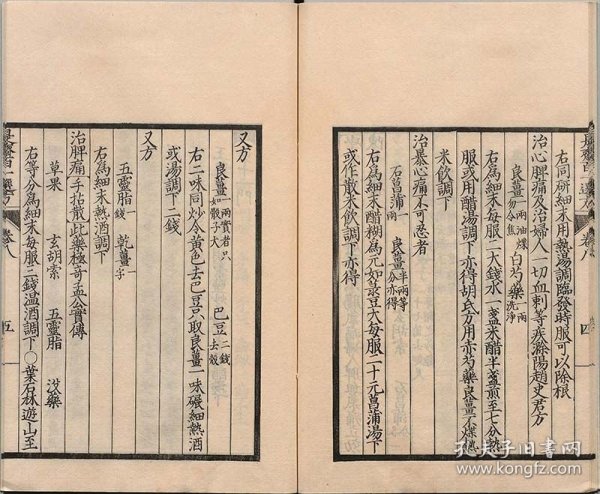 右同研細末用熱湯調臨發時服可以除根
治心脾痛及治婦人一切血刺等疾滁陽趙史君方
良薑一兩油煠勿令焦 白芍藥一兩洗淨
右為細末每服二大錢水一盞米醋半盞煎至七分熱
服或用醋湯調下亦得胡氏方用赤芍藥良薑
米飲調下
治暴心痛不可忍者
石菖蒲一兩 良薑半兩等分亦得
右為細末醋糊為元如菉豆大每服二十元菖蒲湯下
或作散米飲調下亦得
是齋百一選方 卷八 四
又方
良薑一兩實者只如骰子大 巴豆二錢去殼
右二味同炒令黃色去巴豆只取良薑一味碾細熱酒
或湯調下二錢
又方
五靈脂一錢 乾薑一字
右為細末熱酒調下
治脾痛手拈散此藥極奇孟公實傳
草果 玄胡索 五靈脂 沒藥
右等分為細末每服三錢温酒調下〇葉石林遊山至
是齋百一選方 卷八 五
孔夫子旧書网
www.kongfz.com